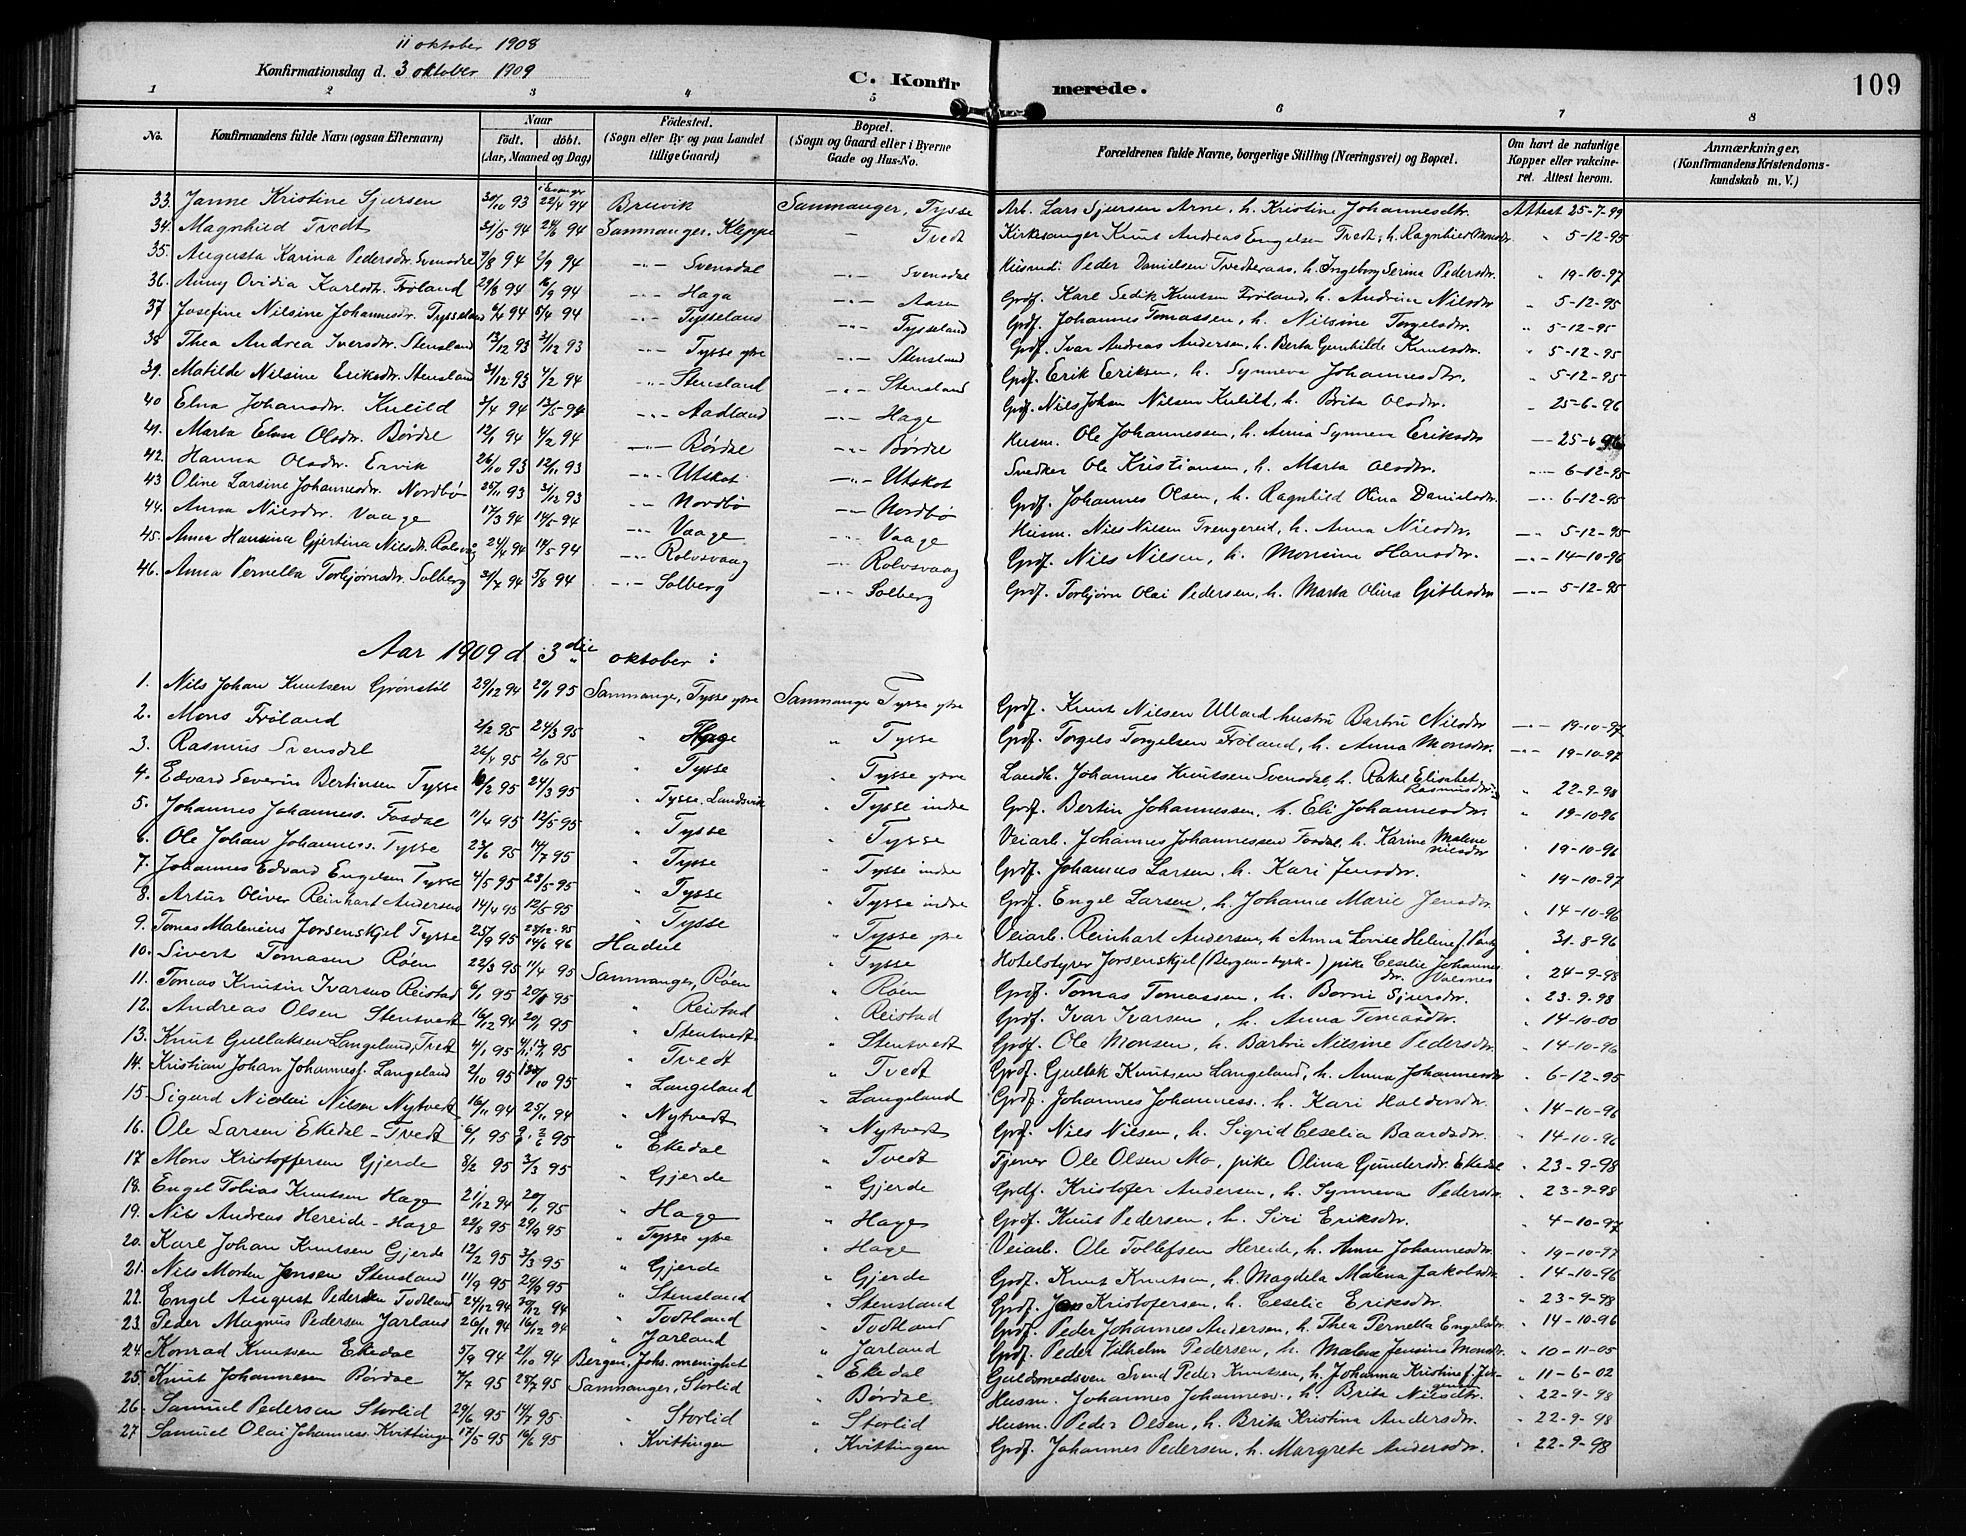 11 oktober 1908
Konfirmationsdag d. 3 oktober 1909
C. Konfirmerede.
109
1 2 3 4 5 6 7 8
No. Konfirmandens fulde Navn (ogsaa Efternavn) Naar født. døbt. (Aar, Maaned og Dag) Fødested. (Sogn eller By og paa Landet tillige Gaard) Bopæl. (Sogn og Gaard eller i Byerne Gade og Hus-No. Forældrenes fulde Navne, borgerlige Stilling (Næringsvei) og Bopæl. Om havt de naturlige Kopper eller vakcineret. Attest herom. Anmærkninger, (Konfirmandens Kristendomskundskab m. V.)
33. Janne Kristine Sjursen 30/10 93 i Evanger 22/4 94 Bruvik Sammanger, Tysse Arb. Lars Sjursen Arne, h. Kristine Johannesdtr. Attest 25-7-99
34. Magnhild Tvedt 31/5 94 24/6 94 Sammanger, Kleppe - Tvedt Kirkesanger Knut Andreas Engelsen Tvedt, h. Ragnhild Monsdr " 5-12-95
35. Augusta Karina Pedersdr. Svensdal 7/8 94 2/9 94 -"- Svensdal -"- Svensdal Peder Danielsen Tvedteraas, h. Ingeborg Serina Pedersdr. " 19-10-97
36. Anny Ovidia Karlsdtr. Frøland 29/8 94 16/9 94 -"- Haga -"- Aasen Grdf. Karl Sedik Knutsen Frøland, h. Andrina Nilsdr " 5-12-95
37. Josefine Nilsine Johannesdr. Tysseland 94 5/4 94 -"- Tysseland -"- Tysseland Grdf. Johannes Tomassen, h. Nilsine Torgelsdr. " 5-12-95
38 Thea Andrea Iversdr. Stensland 13/12 93 31/12 93 -"- Tysse ytre -"- Stensland Grdf. Ivar Andreas Andersen, h. Berta Gunhilde Knutsdr. " 5-12-95
39. Matilde Nilsine Eriksdtr. Stensland 31/12 93 4/2 94 -"- Stensland -"- Stensland Grdf. Erik Eriksen, h. Synneva Johannesdtr. " 5-12-95
40 Elna Johansdr. Kulild 3/4 94 13/5 94 -"- Aadland -"- Hage Grdf. Nils Johan Nilsen Kulild, h. Brita Olsdr. " 25-6-96
41. Marta Elna Olsdr. Børdal 12/1 94 4/2 94 -"- Børdal -"- Børdal Husm. Ole Johannessen, h. Anna Synneva Eriksdr -"- 25-6 96
42. Hanna Olsdr. Ervik 26/10 93 12/11 93 -"- Utskot -"- Utskot Snedker Ole Kristiansen, h. Marta Olsdtr. -"- 6-12-95
43 Oline Larsine Johannesdr. Nordbø 25/11 93 31/12 93 -"- Nordbø -"- Nordbø Grdf. Johannes Olsen, h. Ragnhild Olina Danielsdr. -"- 6-12-95
44. Anna Nilsdr. Vaage 17/3 94 14/5 94 -"- Vaage -"- Vaage Husm. Nils Nilsen Trengereid, h. Anna Nilsdr. -"- 5-12-95
45. Anna Hansina Gjertina Nilsdtr. Rolsvaag 24/4 94 14/5 94 -"- Rolvsvaag -"- Rolvsvaag Grdf. Nils Nilsen, h. Monsine Hansdtr. -"- 14-10-96
46. Anna Pernella Torbjørnsdr. Solberg 31/7 94 5/8 94 -"- Solberg -"- Solberg Grdf. Torbjørn Olai Pedersen, h. Marta Olina Gitlesdtr -"- 5-12-95
Aar 1909 d 3die oktober :
1. Nils Johan Knutsen Grønstøl 29/12 94 20/1 95 Sammanger, Tysse ytre Sammanger Tysse ytre Grdf. Knut Nilsen Ullard hustru Barbru Nilsdtr -"- 19-10-97
2. Mons Frøland 2/2 95 24/3 95 " Hage " Tysse Grdf. Torgels Torgelsen Frøland, h. Anna Monsdr. -"- 19-10-97
3. Rasmus Svensdal 26/4 95 2/6 95 " Tysse " Tysse ytre Landh. Johannes Knutsen Svensdal, h. Rakel Elisabet Rasmusdtr. " 22-9-98
4. Edvard Severin Bertinsen Tysse 10/2 95 24/3 95 " Tysse, Landsvik " Tysse indre Grdf. Bertin Johannessen, h. Eli Johannesdr. " 19-10-96
5. Johannes Johanness. Fosdal 11/4 95 12/5 95 " Tysse " Tysse Veiarb. Johannes Johannessen Fosdal, h. Karine Malene Nilsdr " 19-10-96
6. Ole Johan Johanness. Tysse 23/6 95 14/7 95 " Tysse " Tysse indre Grdf. Johannes Larsen, h. Kari Jensdr. " 14-10-97
7. Johannes Edvard Engelsen Tysse 4/5 95 23/5 95 " Tysse " Tysse indre Grdf. Engel Larsen, h. Johanne Marie Jensdr. " 14-10-96
8. Artur Oliver Reinhart Andersen 14/4 95 12/5 95 " Tysse " Tysse ytre Veiarb. Reinhart Andersen, h. Anna Lovise Helene f. " 31-8-96
9. Tomas Malenius Jorsenskjel Tysse 25/9 95 23/12-95 14/6 96 Hadul " Tysse Hotelstyrer Jorsenskjel (Bergen-tysk-) pike Ceselie Johannesdr. Valsnes " 24-9-98
10. Sivert Tomasen Røen 22/3 95 11/4 95 Sammanger, Røen " Røen Grdf. Tomas Tomassen, h. Borni Sjursdr. " 23-9-98
11. Tomas Knutsin Ivarsen Reistad 6/1 95 20/1 95 " Reistad " Reistad Grdf. Ivar Ivarsen, h. Anna Tomasdr. " 14-10-00
12. Andreas Olsen Stentvedt 16/12 94 20/1 95 " Stentvedt " Stentvedt Grdf. Ole Monsen, h. Barbru Nilsine Pedersdr " 14-10-96
13. Knut Gullaksen Langeland, Tvedt 4/1 95 95 " Tvedt " Tvedt Grdf. Gullak Knutsen Langeland, h. Anna Johannesdr " 6-12-95
14. Kristian Johan Johannesf. Langeland 2/10 95 /10 95 " Langeland " Langeland Grdf. Johannes Johanness. h. Kari Haldorsdr. " 14-10-96
15 Sigurd Nicolai Nilsen Nytvedt 16/11 94 25/11 94 " Nytvedt " Nytvedt Grdf. Nils Nilsen, h. Sigrid Ceselia Baardsdr. " 14-10-96
16. Ole Larsen Ekedal-Tvedt 6/1 95 95 " Ekedal " Tvedt Tjener Ole Olsen Mo, pike Olina Gundersdr. Ekedal " 23-9-98
17 Mons Kristoffersen Gjerde 8/2 95 3/3 95 " Gjerde " Gjerde Grdf. Kristofer Andersen, h. Synneva Pedersdr " 23-9-98
18. Engel Tobias Knutsen Hage 21/12 94 20/1 95 " Hage " Hage Grdf. Knut Pedersen, h. Siri Eriksdr. " 4-10-97
19. Nils Andreas Hereide-Hage 22/8 95 29/9 95 " Tysse ytre " Hage Veiarb. Ole Tollefsen Hereide, h. Anna Johannesdr. " 19-10-97
20. Karl Johan Knutsen Gjerde 12/2 95 3/3 95 " Gjerde " Gjerde Grdf. Knut Knutson, h. Magdela Malena Jakobsdr " 14-10-96
21. Nils Morten Jensen Stensland 11/9 95 29/9 95 " Stensland " Stensland Grdf. Jens Kristofersen, h. Ceselie Eriksdr. " 23-9-98
22. Engel August Pedersen Todtland 24/12 94 30/12 94 " Todtland " Todtland Grdf. Peder Johannes Andersen, h. Thea Pernella Engelsdr. " 14-10-96
23. Peder Magnus Pedersen Jarland 26/11 94 16/12 94 " Jarland " Jarland Grdf. Peder Vilhelm Pedersen, h. Malene Jensine Monsdr " 10-11-05
24. Konrad Knutsen Ekedal 5/9 94 21/10 94 Bergen, Johs. menighet " Ekedal Guldsmedsven Svend Peder Knutsen, h. Johanna Kristine f. " 11-6-02
25. Knut Johannesen Børdal 7/7 95 25/7 95 Sammanger, Storlid " Børdal Husm. Johannes Johanness. h. Brite Nilsdtr. " 22-9-98
26. Samuel Pedersen Storlid 29/6 95 14/7 95 " Storlid " Storlid Husm. Peder Olsen, h. Brita Kristina Andersdr. " 22-9-98
27 Samuel Olai Johanness. Kvittingen 17/5 95 16/6 95 " Kvittingen " Kvittingen Grdf. Johannes Pedersen, h. Margrete Andersdtr. " 22-9-98